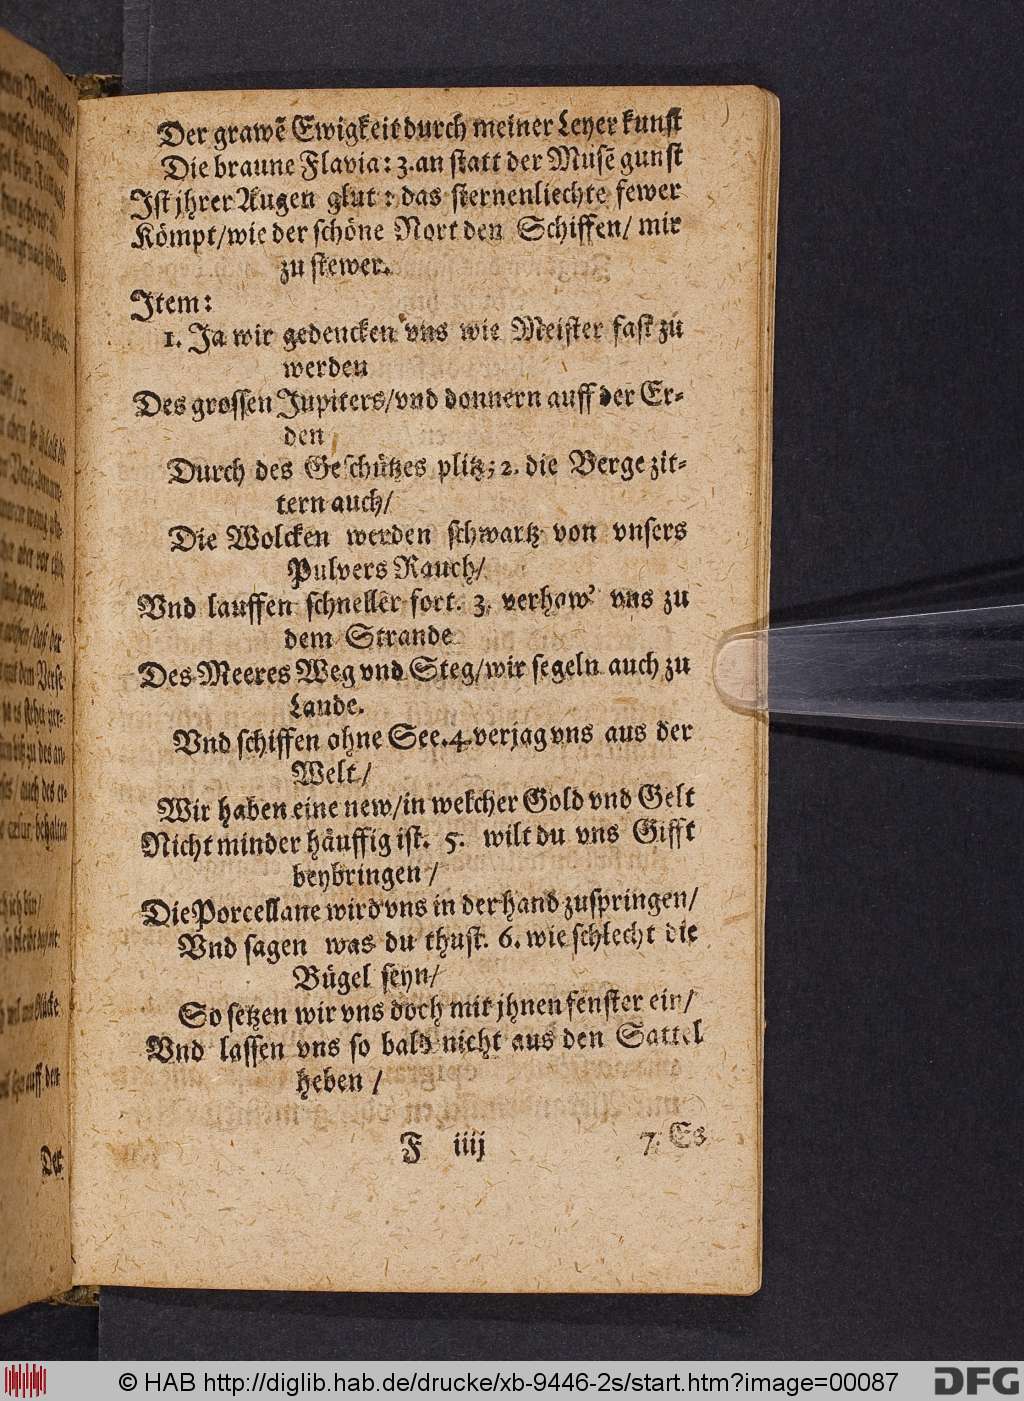 Der grawẽ Ewigkeit durch meiner Leyer kunst
Die braune Flavia: 3. an statt der Musẽ gunst
Ist jhrer Augen glut : das sternenliechte fewer
Kömpt/ wie der schöne Nort den Schiffen/ mir
zu stewer.
Item:
1. Ja wir gedencken vns wie Meister fast zu
werden
Des grossen Jupiters/ vnd donnern auff der Er-
den
Durch des Geschützes plitz; 2. die Berge zit-
tern auch/
Die Wolcken werden schwartz von vnsers
Pulvers Rauch/
Vnd lauffen schneller fort. 3. verhaw' vns zu
dem Strande
Des Meeres Weg vnd Steg/ wir segeln auch zu
Lande.
Vnd schiffen ohne See. 4. verjag vns aus der
Welt/
Wir haben eine new/ in welcher Gold vnd Gelt
Nicht minder häuffig ist. 5. wilt du vns Gifft
beybringen/
Die Porcellane wird vns in der hand zuspringen/
Vnd sagen was du thust. 6. wie schlecht die
Bügel seyn/
So setzen wir vns doch mit jhnen fenster ein/
Vnd lassen vns so bald nicht aus den Sattel
heben /
F iiij
7. Es
© HAB http://diglib.hab.de/drucke/xb-9446-2s/start.htm?image=00087
DFG